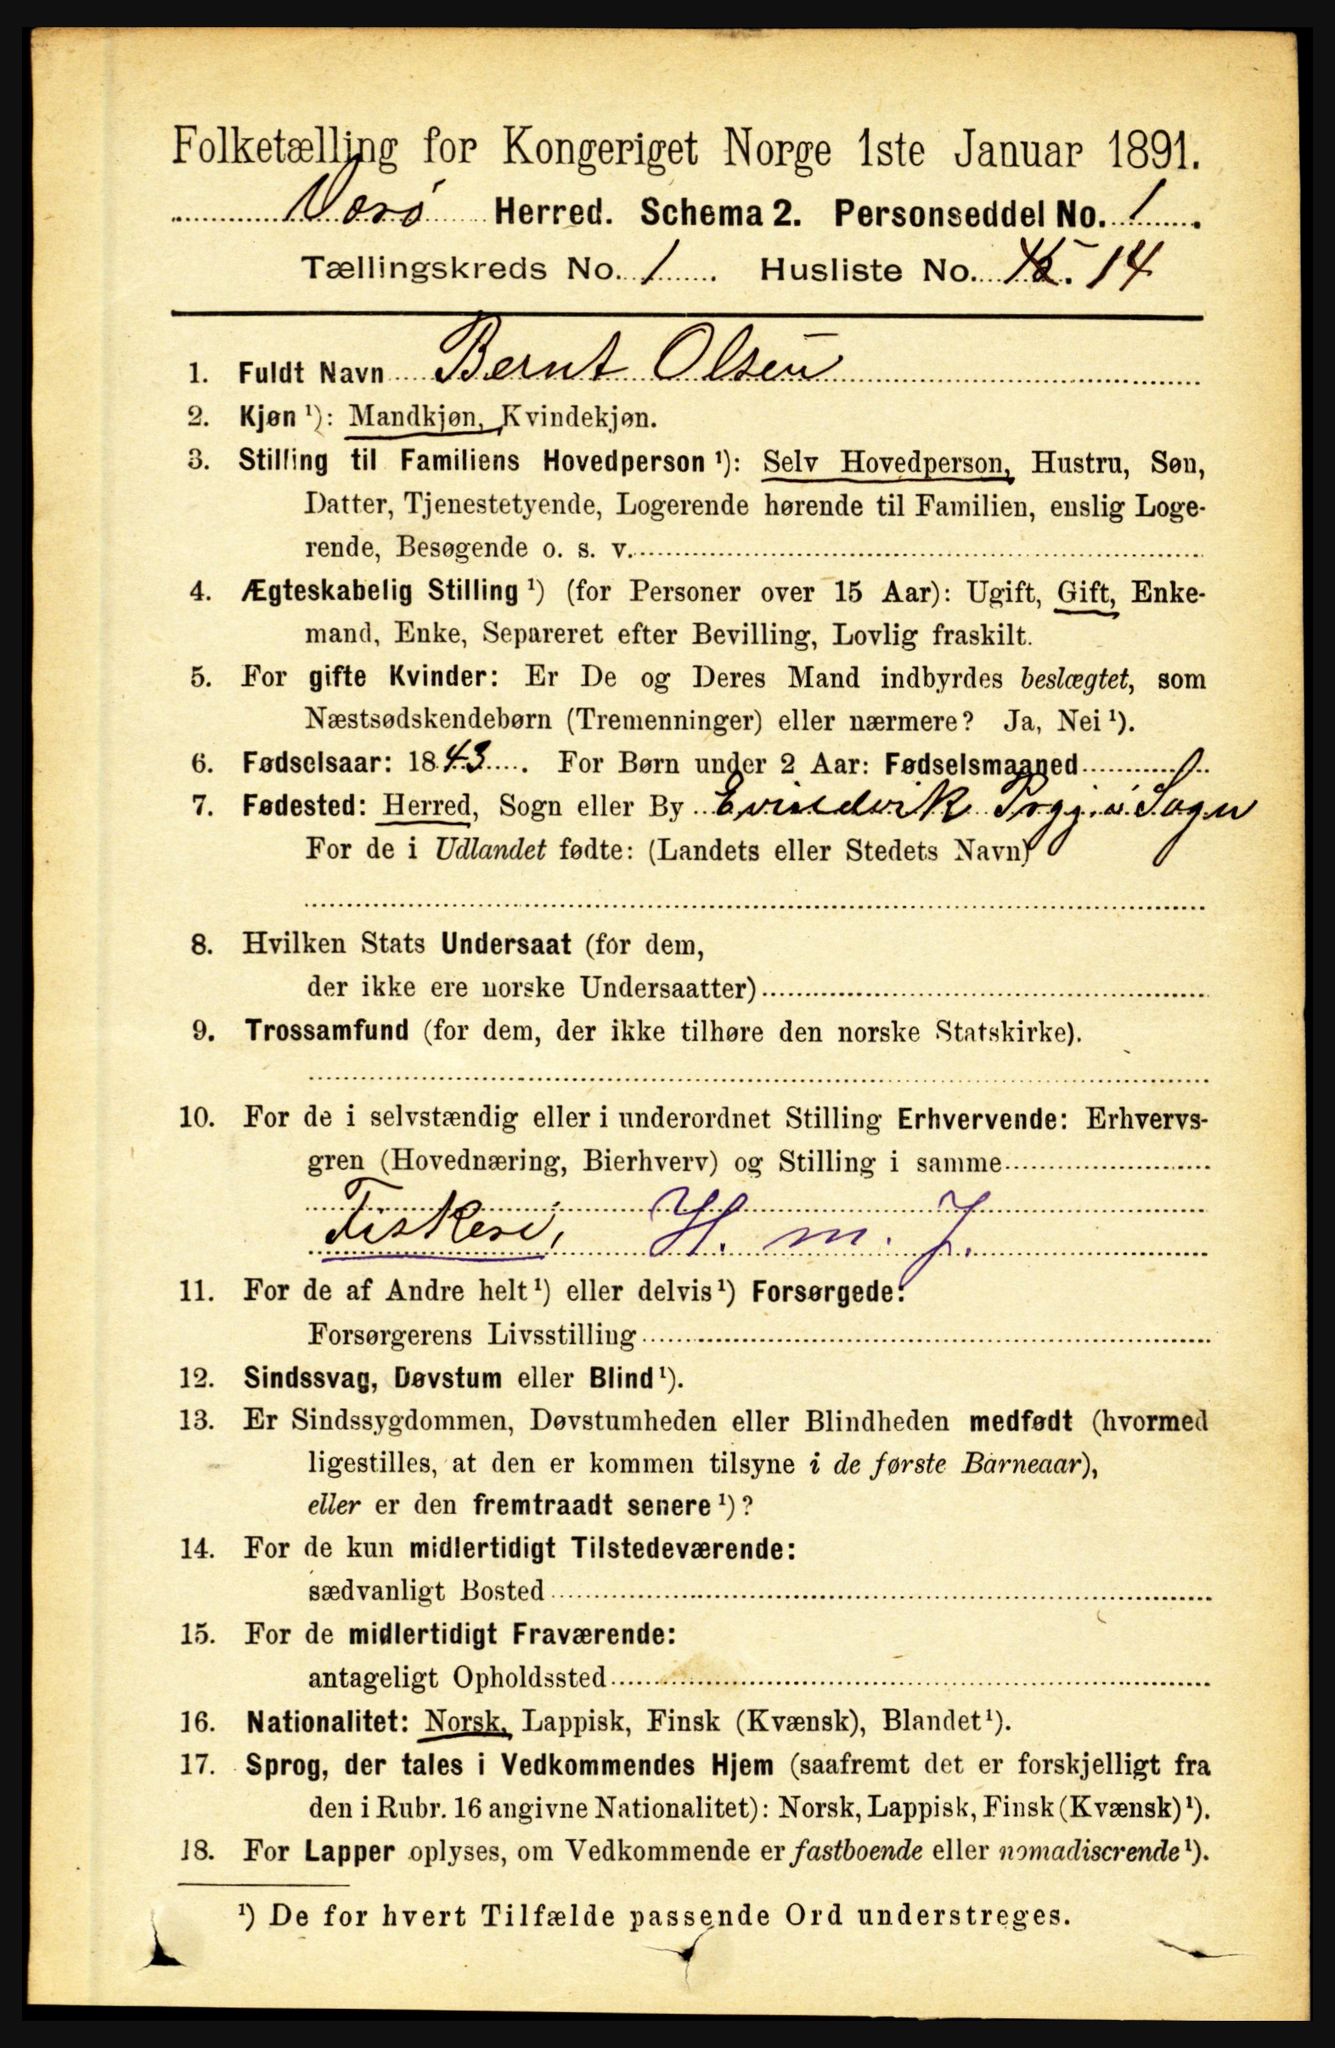 Folketælling for Kongeriget Norge 1ste Januar 1891.
Værø Herred. Schema 2. Personseddel No. 1.
Tællingskreds No. 1. Husliste No. 14
1. Fuldt Navn Bernt Olsen
2. Kjøn ¹): Mandkjøn, Kvindekjøn.
3. Stilling til Familiens Hovedperson ¹): Selv Hovedperson, Hustru, Søn,
Datter, Tjenestetyende, Logerende hørende til Familien, enslig Loge-
rende, Besøgende o. s. v.
4. Ægteskabelig Stilling ¹) (for Personer over 15 Aar): Ugift, Gift, Enke-
mand, Enke, Separeret efter Bevilling, Lovlig fraskilt.
5. For gifte Kvinder: Er De og Deres Mand indbyrdes beslægtet, som
Næstsødskendebørn (Tremenninger) eller nærmere? Ja, Nei ¹).
6. Fødselsaar: 1843. For Børn under 2 Aar: Fødselsmaaned
7. Fødested: Herred, Sogn eller By Evindvik Prgj. i Sogn
For de i Udlandet fødte: (Landets eller Stedets Navn)
8. Hvilken Stats Undersaat (for dem,
der ikke ere norske Undersaatter)
9. Trossamfund (for dem, der ikke tilhøre den norske Statskirke).
10. For de i selvstændig eller i underordnet Stilling Erhvervende: Erhvervs-
gren (Hovednæring, Bierhverv) og Stilling i samme
Fiskeri, H. m. J.
11. For de af Andre helt ¹) eller delvis ¹) Forsørgede:
Forsørgerens Livsstilling
12. Sindssvag, Døvstum eller Blind ¹).
13. Er Sindssygdommen, Døvstumheden eller Blindheden medfødt (hvormed
ligestilles, at den er kommen tilsyne i de første Barneaar),
eller er den fremtraadt senere ¹)?
14. For de kun midlertidigt Tilstedeværende:
sædvanligt Bosted
15. For de midlertidigt Fraværende:
antageligt Opholdssted
16. Nationalitet: Norsk, Lappisk, Finsk (Kvænsk), Blandet ¹).
17. Sprog, der tales i Vedkommendes Hjem (saafremt det er forskjelligt fra
den i Rubr. 16 angivne Nationalitet): Norsk, Lappisk, Finsk (Kvænsk) ¹).
18. For Lapper oplyses, om Vedkommende er fastboende eller nomadiserende ¹).
¹) De for hvert Tilfælde passende Ord understreges.